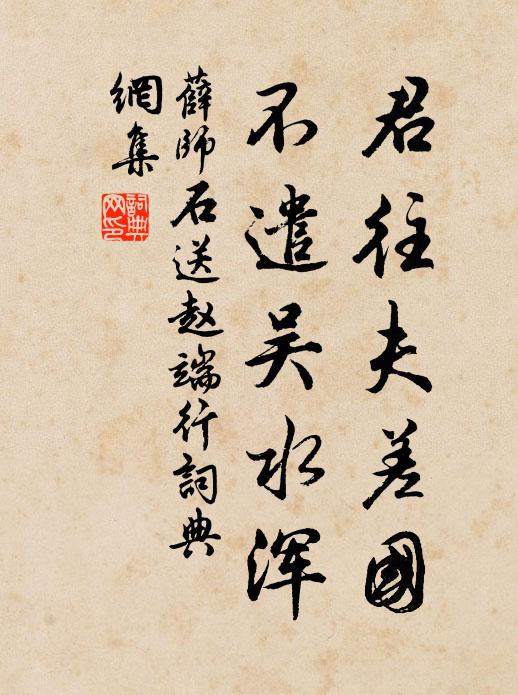 君往夫差國
不遣吴水浑
薛師石送赵端行詞典
網集
詞典
网印